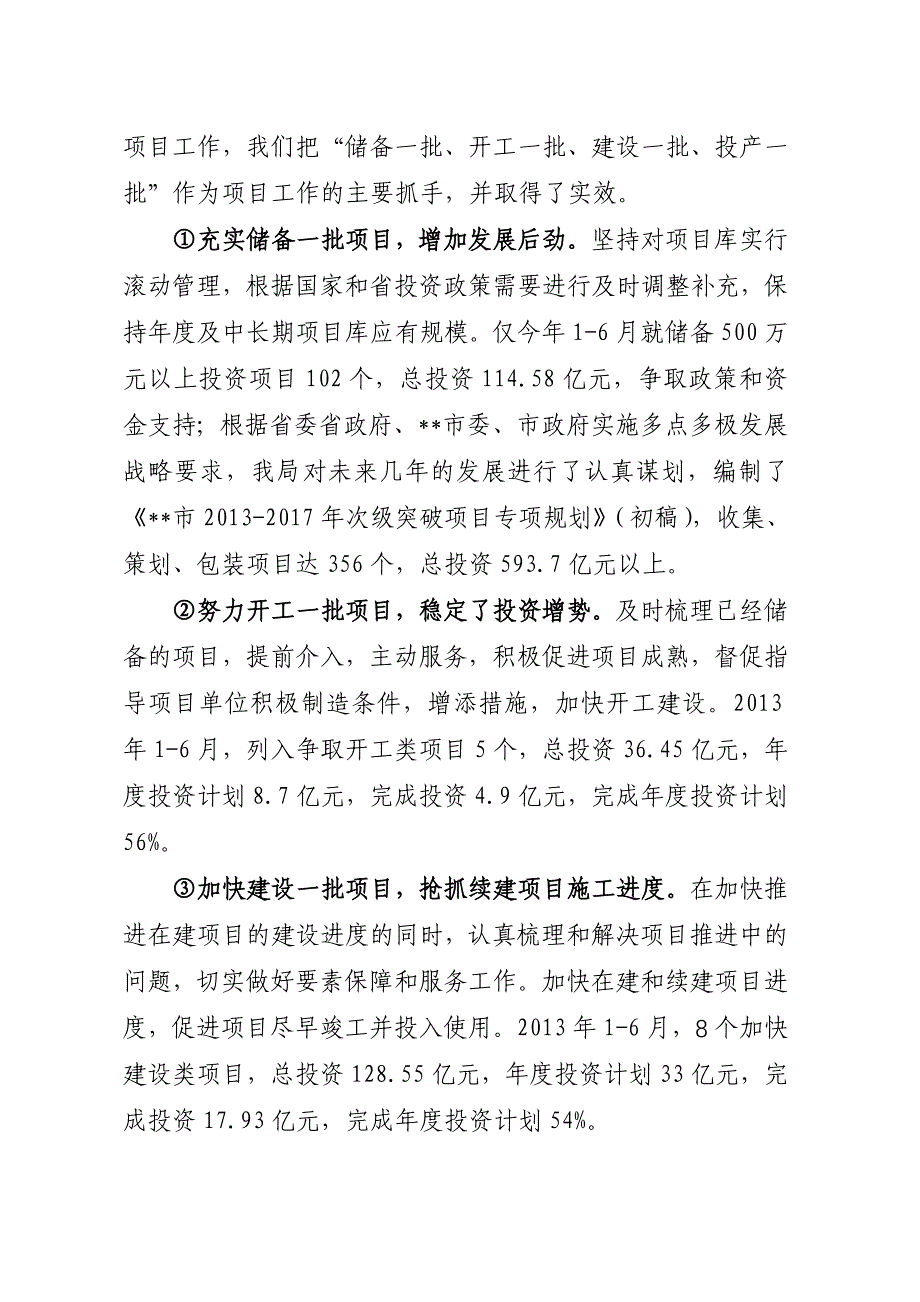 项目工作，我们把“储备一批、开工一批、建设一批、投产一
批”作为项目工作的主要抓手，并取得了实效。
①充实储备一批项目，增加发展后劲。坚持对项目库实行
滚动管理，根据国家和省投资政策需要进行及时调整补充，保
持年度及中长期项目库应有规模。仅今年1-6月就储备500万
元以上投资项目102个，总投资114.58亿元，争取政策和资
金支持；根据省委省政府、**市委、市政府实施多点多极发展
战略要求，我局对未来几年的发展进行了认真谋划，编制了
《**市2013-2017年次级突破项目专项规划》（初稿），收集、
策划、包装项目达356个，总投资593.7亿元以上。
②努力开工一批项目，稳定了投资增势。及时梳理已经储
备的项目，提前介入，主动服务，积极促进项目成熟，督促指
导项目单位积极制造条件，增添措施，加快开工建设。2013
年1-6月，列入争取开工类项目5个，总投资36.45亿元，年
度投资计划8.7亿元，完成投资4.9亿元，完成年度投资计划
56%。
③加快建设一批项目，抢抓续建项目施工进度。在加快推
进在建项目的建设进度的同时，认真梳理和解决项目推进中的
问题，切实做好要素保障和服务工作。加快在建和续建项目进
度，促进项目尽早竣工并投入使用。2013年1-6月，8个加快
建设类项目，总投资128.55亿元，年度投资计划33亿元，完
成投资17.93亿元，完成年度投资计划54%。